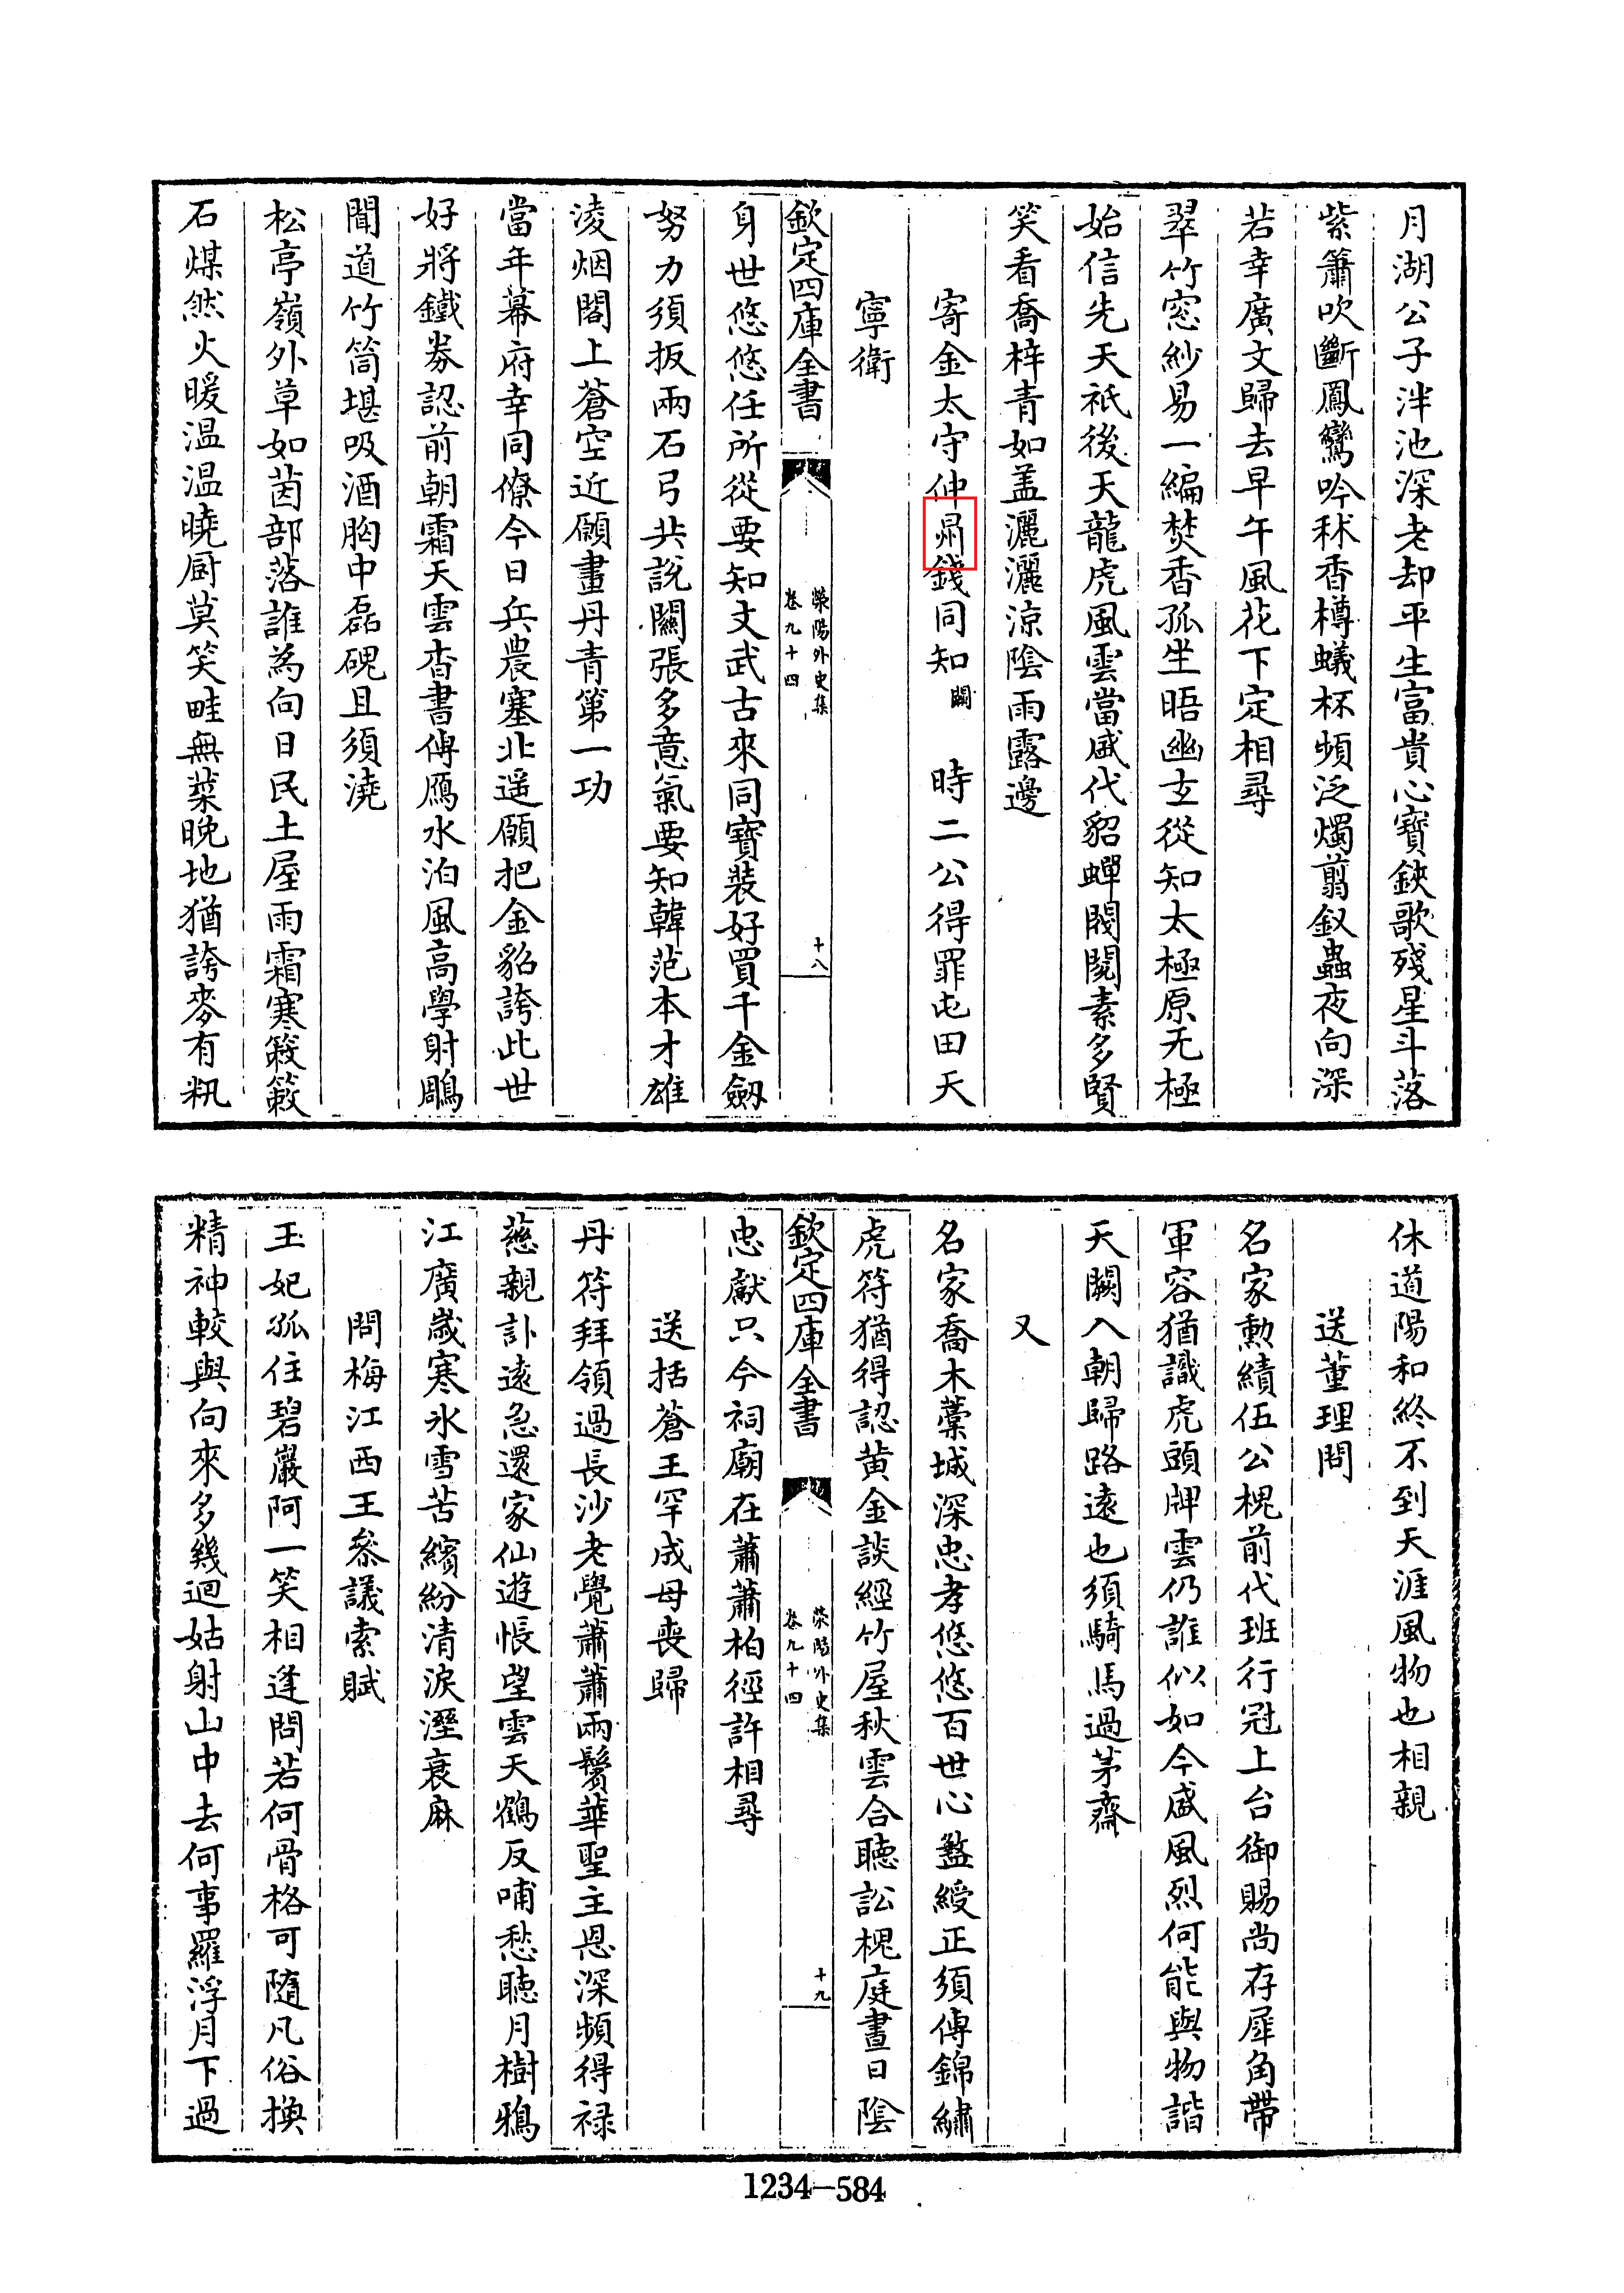 月湖公子泮池深老却平生富貴心寶鋏歌殘星斗落
紫簫吹斷鳳鸞吟秫香樽蟻杯頻泛燭翦釵蟲夜向深
若幸廣文歸去早午風花下定相尋
翠竹窓紗易一編焚香孤坐晤幽玄從知太極原无極
始信先天祇後天龍虎風雲當盛代貂蟬閥閱素多賢
笑看喬梓青如盖灑灑涼陰雨露邊
寄金太守仲錢同知闕 時二公得罪屯田天
寧衛
欽定四庫全書
滎陽外史集
卷九十四
十八
身世悠悠任所從要知文武古來同寶裝好買千金劔
努力須扳兩石弓共說關張多意氣要知韓范本才雄
淩烟閣上蒼空近願畫丹青第一功
當年幕府幸同僚今日兵農塞北遥願把金貂誇此世
好將鐵券認前朝霜天雲杳書傳鴈水泊風高學射鵰
聞道竹筒堪吸酒胸中磊磈且須澆
松亭嶺外草如茵部落誰為向日民土屋雨霜寒簌簌
石煤然火暖温温曉厨莫笑畦無菜晚地猶誇麥有籸
休道陽和終不到天涯風物也相親
送董理問
名家勲績伍公槐前代班行冠上台御賜尚存犀角帶
軍容猶識虎頭牌雲仍誰似如今盛風烈何能與物諧
天闕入朝歸路遠也須騎馬過茅齋
又
名家喬木藁城深忠孝悠悠百世心盩綬正須傳錦繡
虎符猶得認黄金談經竹屋秋雲合聴訟槐庭晝日陰
欽定四庫全書
滎陽外史集
卷九十四
十九
忠獻只今祠廟在蕭蕭柏徑許相尋
送括蒼王罕成母喪歸
丹符拜領過長沙老覺蕭蕭兩鬢華聖主恩深頻得禄
慈親訃遠急還家仙遊悵望雲天鶴反哺愁聴月樹鴉
江廣歲寒氷雪苦繽紛清淚溼衰麻
問梅江西王叅議索賦
玉妃孤住碧巖阿一笑相逢問若何骨格可隨凡俗換
精神較與向來多幾迴姑射山中去何事羅浮月下過
1234—584